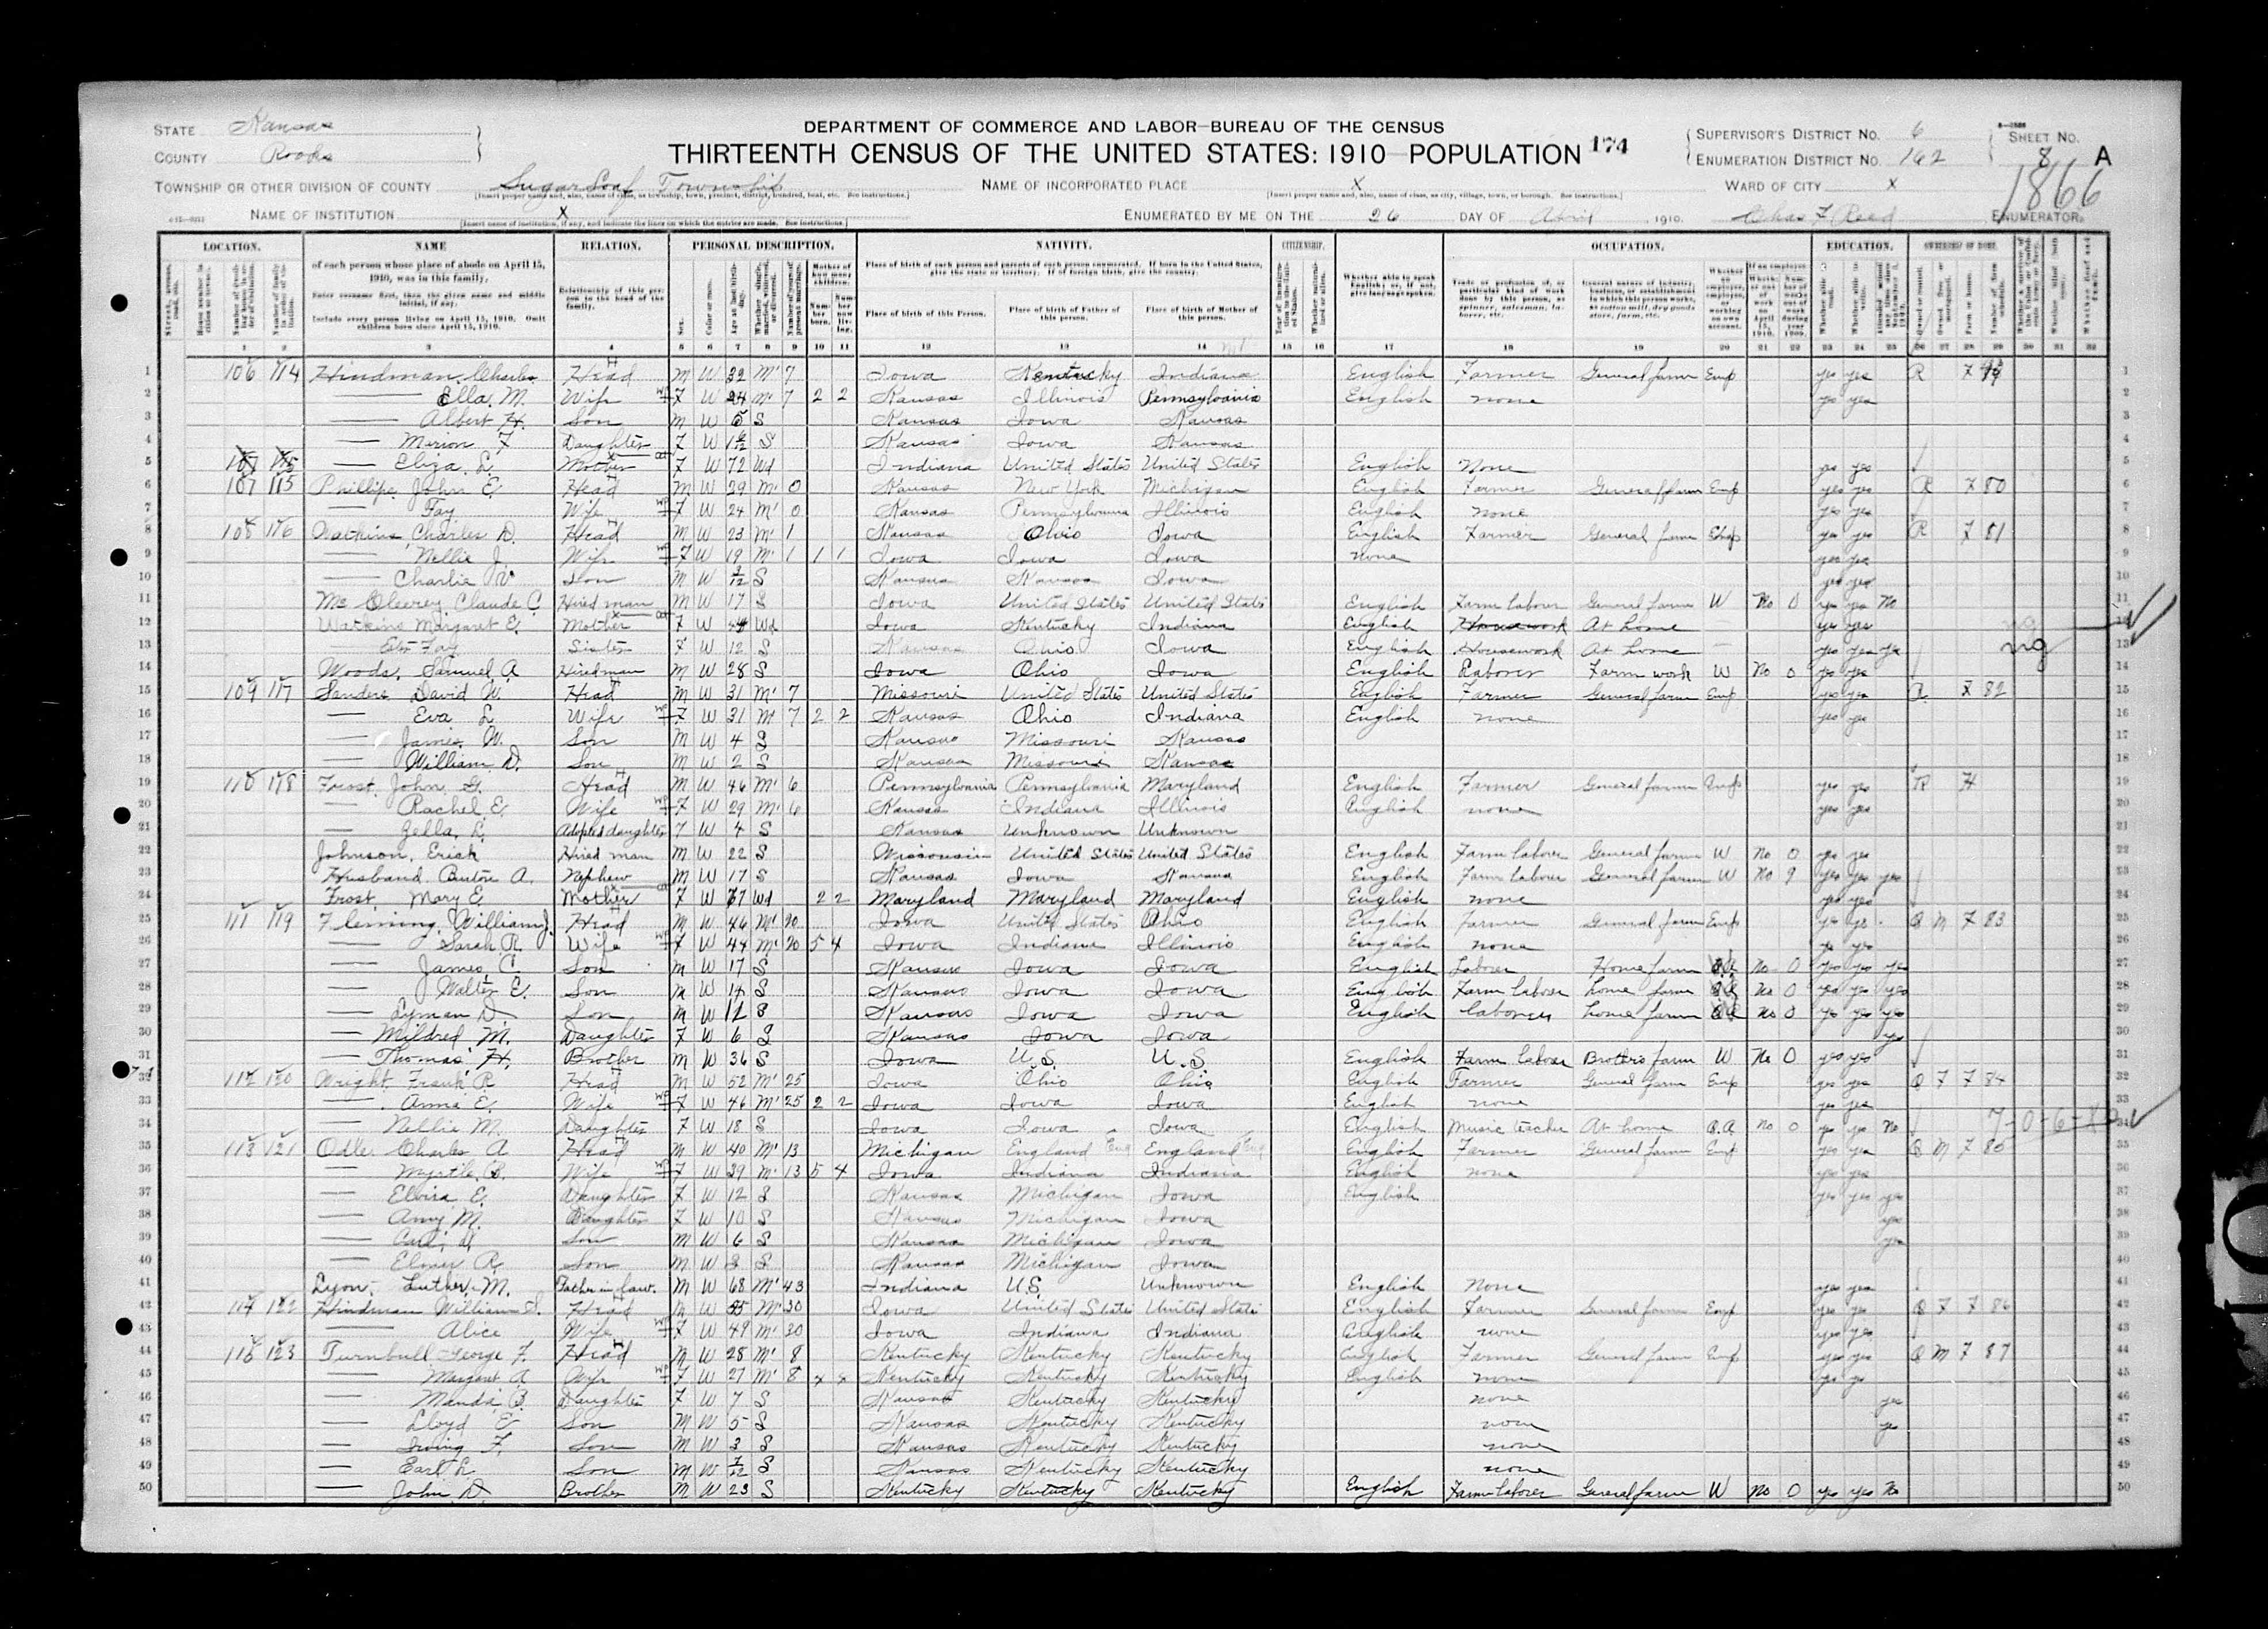 DEPARTMENT OF COMMERCE AND LABOR—BUREAU OF THE CENSUS
THIRTEENTH CENSUS OF THE UNITED STATES: 1910—POPULATION 174
STATE Kansas
COUNTY Rooks
SUPERVISOR'S DISTRICT No. 6
ENUMERATION DISTRICT No. 162
SHEET No. 8 A
1866
TOWNSHIP OR OTHER DIVISION OF COUNTY Sugar Loaf Township NAME OF INCORPORATED PLACE X WARD OF CITY X
NAME OF INSTITUTION X ENUMERATED BY ME ON THE 26 DAY OF April, 1910. Chas F Reed ENUMERATOR.
LOCATION. NAME RELATION. PERSONAL DESCRIPTION. NATIVITY. CITIZENSHIP. OCCUPATION. EDUCATION. OWNERSHIP OF HOME.
of each person whose place of abode on April 15, 1910, was in this family.
Enter surname first, then the given name and middle initial, if any.
Include every person living on April 15, 1910. Omit children born since April 15, 1910.
Relationship of this person to the head of the family.
Place of birth of each person and parents of each person enumerated. If born in the United States, give the state or territory. If of foreign birth, give the country.
Place of birth of this Person. Place of birth of Father of this person. Place of birth of Mother of this person.
1 2 3 4 5 6 7 8 9 10 11 12 13 14 15 16 17 18 19 20 21 22 23 24 25 26 27 28 29 30 31 32
1 106 114 Hindman, Charles Head M W 32 M1 7 Iowa Kentucky Indiana English Farmer General farm Emp yes yes R F 79
2 — Ella M. Wife F W 24 M1 7 2 2 Kansas Illinois Pennsylvania English none yes yes
3 — Albert H. Son M W 5 S Kansas Iowa Kansas
4 — Marion F Daughter F W S Kansas Iowa Kansas
5 — Eliza L. Mother F W 72 Wd Indiana United States United States English None yes yes
6 107 115 Phillips, John E. Head M W 29 M1 0 Kansas New York Michigan English Farmer General farm Emp yes yes R F 80
7 — Fay Wife F W 24 M1 0 Kansas Pennsylvania Illinois English none yes yes
8 108 116 Watkins, Charles D. Head M W 23 M1 1 Kansas Ohio Iowa English Farmer General farm Emp yes yes R F 81
9 — Nellie J. Wife F W 19 M1 1 1 1 Iowa Iowa Iowa none yes yes
10 — Charlie V Son M W S Kansas Kansas Iowa yes yes
11 Claude C. Hired man M W 17 S Iowa United States United States English Farm laborer General farm W No 0 yes yes No
12 Watkins Margaret E. Mother F W 44 Wd Iowa Kentucky Indiana English Housework At home yes yes
13 — Fay Sister F W 12 S Kansas Ohio Iowa English Housework At home — yes yes yes ng
14 Woods, Samuel A. Hired man M W 28 S Iowa Ohio Iowa English Laborer Farm work W No 0 yes yes
15 109 117 Sanders David W. Head M W 31 M1 7 Missouri United States United States English Farmer General farm Emp yes yes R F 82
16 — Eva L Wife F W 31 M1 7 2 2 Kansas Ohio Indiana English none yes yes
17 — James W. Son M W 4 S Kansas Missouri Kansas
18 — William D. Son M W 2 S Kansas Missouri Kansas
19 110 118 Frost, John G. Head M W 46 M1 6 Pennsylvania Pennsylvania Maryland English Farmer General farm Emp yes yes R H
20 — Rachel E. Wife F W 29 M1 6 Kansas Indiana Illinois English none yes yes
21 — Zella L. Adopted daughter F W 4 S Kansas Unknown Unknown
22 Johnson, Erick Hired man M W 22 S Wisconsin United States United States English Farm laborer General farm W No 0 yes yes
23 Husband Burton A. Nephew M W 17 S Kansas Iowa Kansas English Farm laborer General farm W No 9 yes yes yes
24 Frost, Mary E. Mother F W 67 Wd 2 2 Maryland Maryland Maryland English none yes yes
25 111 119 Fleming, William J. Head M W 46 M1 20 Iowa United States Ohio English Farmer General farm Emp yes yes O M F 83
26 — Sarah R. Wife F W 44 M1 20 5 4 Iowa Indiana Illinois English none yes yes
27 — James C Son M W 17 S Kansas Iowa Iowa English Laborer Home farm No 0 yes yes yes
28 — Walter E. Son M W 14 S Kansas Iowa Iowa English Farm laborer home farm No 0 yes yes yes
29 — Lyman D. Son M W 12 S Kansas Iowa Iowa English laborer home farm No 0 yes yes yes
30 — Mildred M. Daughter F W 6 S Kansas Iowa Iowa yes
31 — Thomas H. Brother M W 36 S Iowa U.S. U.S English Farm laborer Brothers farm W No 0 yes yes
32 112 120 Wright, Frank R Head M W 52 M1 25 Iowa Ohio Ohio English Farmer General farm Emp yes yes O F F 84
33 — Anna E. Wife F W 46 M1 25 2 2 Iowa Iowa Iowa English none yes yes
34 — Nellie M. Daughter F W 18 S Iowa Iowa Iowa English Music teacher At home O.A. no 0 yes yes No
35 113 121 Odle, Charles A Head M W 40 M1 13 Michigan England Eng England Eng English Farmer General farm Emp yes yes O M F 85
36 — Myrtle B. Wife F W 29 M1 13 5 4 Iowa Indiana Indiana English none yes yes
37 — Elvira E. Daughter F W 12 S Kansas Michigan Iowa English yes yes yes
38 — Amy M. Daughter F W 10 S Kansas Michigan Iowa yes
39 — Son M W 6 S Kansas Michigan Iowa yes
40 — Elmer R. Son M W S Kansas Michigan Iowa
41 Lyon, Luther M. Father in law. M W 68 M1 43 Indiana U.S. Unknown English None yes yes
42 114 122 Hindman William S. Head M W 55 M1 30 Iowa United States United States English Farmer General farm Emp yes yes O F F 86
43 — Alice Wife F W 49 M1 30 Iowa Indiana Indiana English none yes yes
44 115 123 Turnbull George F. Head M W 28 M1 8 Kentucky Kentucky Kentucky English Farmer General farm Emp yes yes O M F 87
45 — Margaret A Wife F W 27 M1 8 4 4 Kentucky Kentucky Kentucky English none yes yes
46 — Manda B. Daughter F W 7 S Kansas Kentucky Kentucky none yes
47 — Lloyd E Son M W 5 S Kansas Kentucky Kentucky none yes
48 — Irving F. Son M W 3 S Kansas Kentucky Kentucky none
49 — Earl L. Son M W S Kansas Kentucky Kentucky none
50 — John D. Brother M W 23 S Kentucky Kentucky Kentucky English Farm laborer General farm W No 0 yes yes No